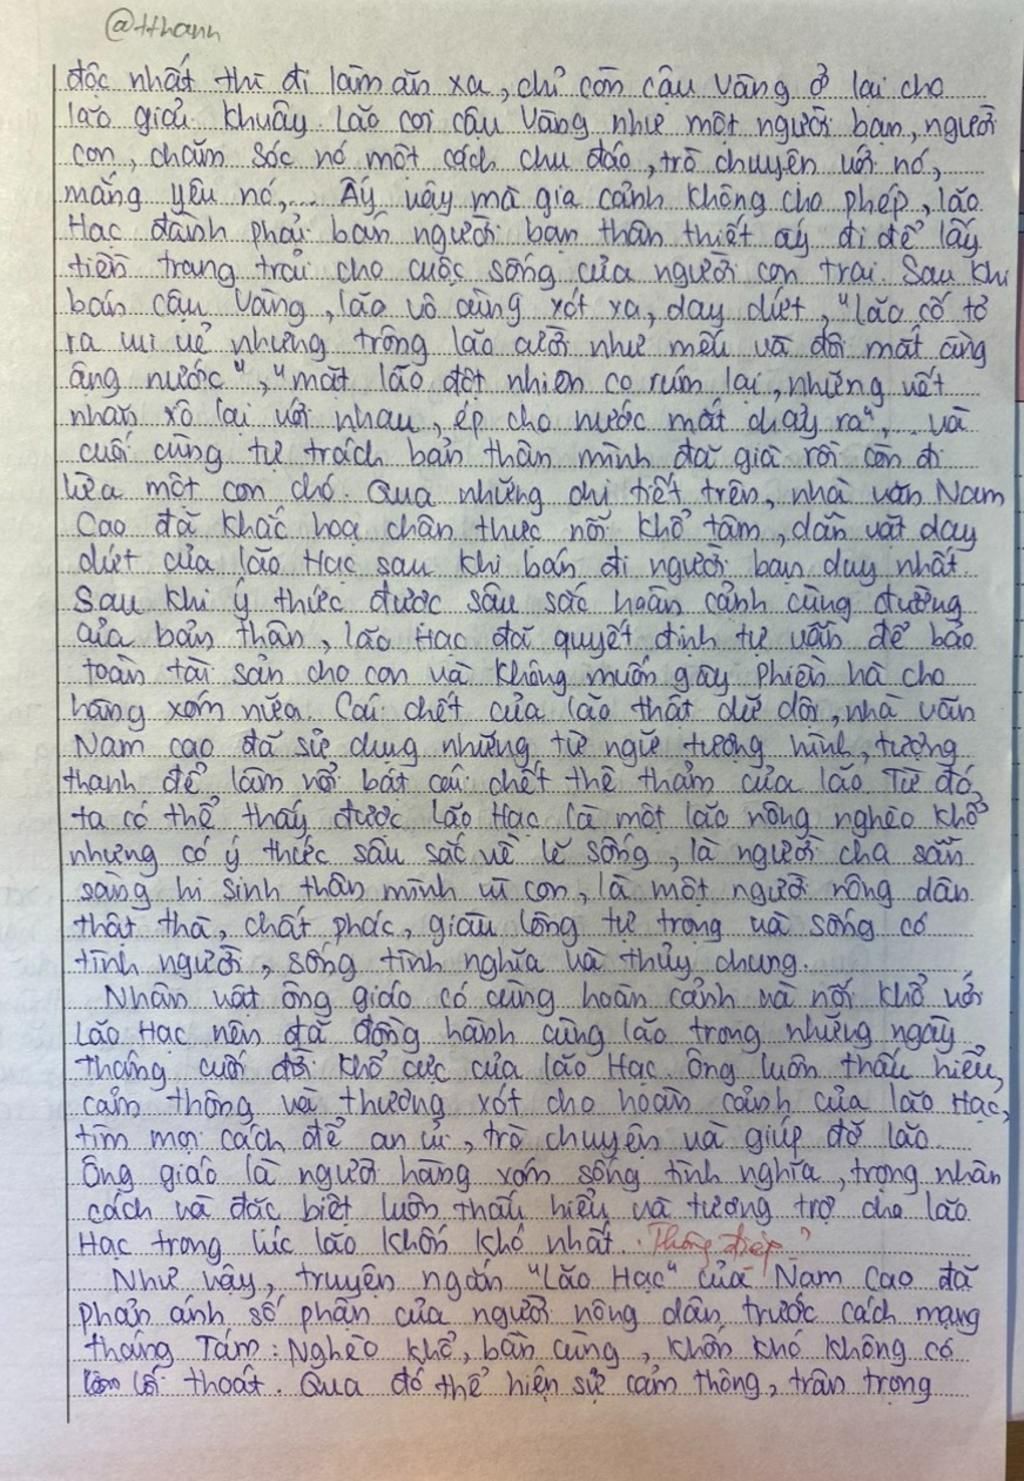 @tthanh
độc nhất thì đi làm ăn xa, chỉ còn cậu Vàng ở lại cho
lão giải khuây. Lão coi cậu Vàng như một người bạn, người
con, chăm sóc nó một cách chu đáo, trò chuyện với nó,
mắng yêu nó,... Ấy vậy mà gia cảnh không cho phép, lão
Hạc đành phải bán người bạn thân thiết ấy đi để lấy
tiền trang trải cho cuộc sống của người con trai. Sau khi
bán cậu Vàng, lão vô cùng xót xa, day dứt, "lão cố tỏ
ra vui vẻ nhưng trông lão cười như mếu và đôi mắt ầng
ậng nước", "mặt lão đột nhiên co rúm lại, những vết
nhăn xô lại với nhau, ép cho nước mắt chảy ra",... và
cuối cùng tự trách bản thân mình đã già rồi còn đi
lừa một con chó. Qua những chi tiết trên, nhà văn Nam
Cao đã khắc hoạ chân thực nỗi khổ tâm, dằn vặt day
dứt của lão Hạc sau khi bán đi người bạn duy nhất.
Sau khi ý thức được sâu sắc hoàn cảnh cùng đường
của bản thân, lão Hạc đã quyết định tự vẫn để bảo
toàn tài sản cho con và không muốn gây phiền hà cho
hàng xóm nữa. Cái chết của lão thật dữ dội, nhà văn
Nam Cao đã sử dụng những từ ngữ tượng hình, tượng
thanh để làm nổi bật cái chết thê thảm của lão. Từ đó,
ta có thể thấy được lão Hạc là một lão nông nghèo khổ
nhưng có ý thức sâu sắc về lẽ sống, là người cha sẵn
sàng hi sinh thân mình vì con, là một người nông dân
thật thà, chất phác, giàu lòng tự trọng và sống có
tình người, sống tình nghĩa và thủy chung.
Nhân vật ông giáo có cùng hoàn cảnh và nỗi khổ với
lão Hạc nên đã đồng hành cùng lão trong những ngày
tháng cuối đời khổ cực của lão Hạc. Ông luôn thấu hiểu,
cảm thông và thương xót cho hoàn cảnh của lão Hạc,
tìm mọi cách để an ủi, trò chuyện và giúp đỡ lão.
Ông giáo là người hàng xóm sống tình nghĩa, trọng nhân
cách và đặc biệt luôn thấu hiểu và tương trợ cho lão
Hạc trong lúc lão khốn khó nhất. Thông điệp?
Như vậy, truyện ngắn "Lão Hạc" của Nam Cao đã
phản ánh số phận của người nông dân trước cách mạng
tháng Tám: Nghèo khổ, bần cùng, khốn khó không có
lối thoát. Qua đó thể hiện sự cảm thông, trân trọng